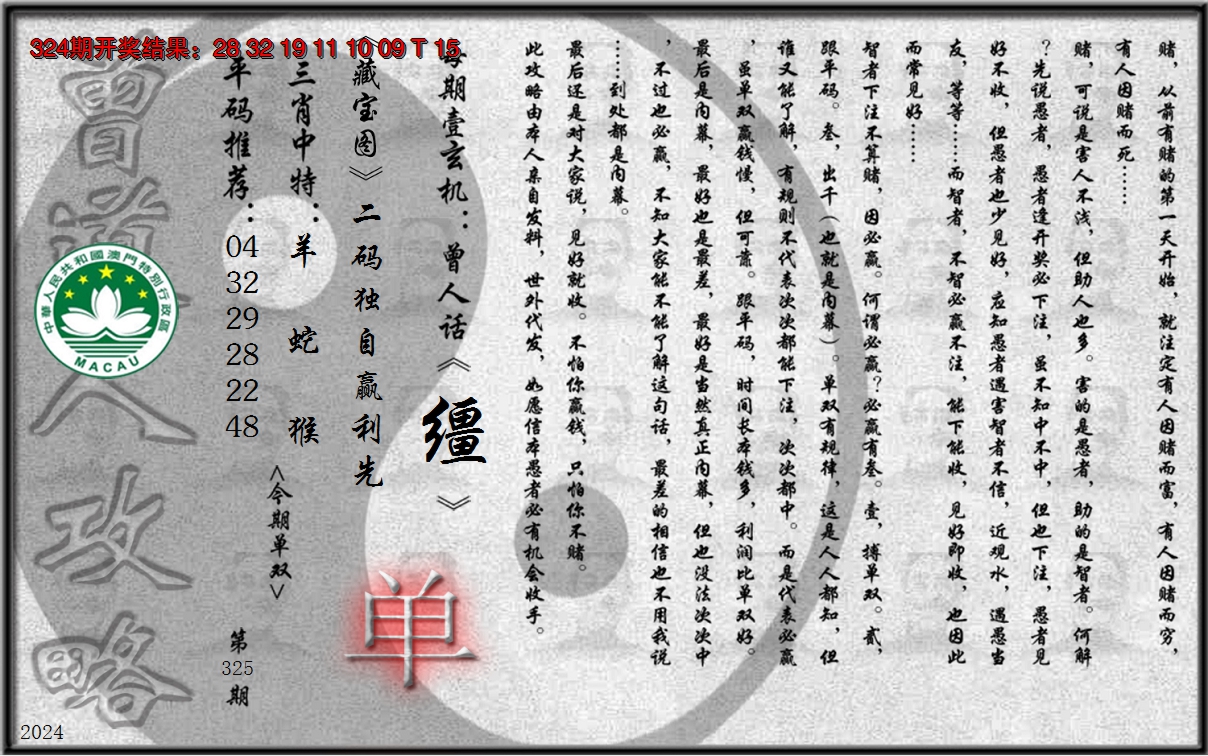 324期开奖结果：28 32 19 11 10 09 T 15
赌，从前有赌的第一天开始，就注定有人因赌而富，有人因赌而穷，
有人因赌而死……
赌，可说是害人不浅，但助人也多。害的是愚者，助的是智者。何解
？先说愚者，愚者逢开奖必下注，虽不知中不中，但也下注，愚者见
好不收，但愚者也少见好，应知愚者遇害智者不信，近观水，遇愚当
友，等等……而智者，不智必赢不注，能下能收，见好即收，也因此
而常见好……
智者下注不算赌，因必赢。何谓必赢？必赢有叁。壹，搏单双。贰，
跟平码。叁，出千（也就是内幕）。单双有规律，这是人人都知，但
谁又能了解，有规则不代表次次都能下注，次次都中。而是代表必赢
，虽单双赢钱慢，但可靠。跟平码，时间长本钱多，利润比单双好。
最后是内幕，最好也是最差，最好是当然真正内幕，但也没法次次中
，不过也必赢，不知大家能不能了解这句话，最差的相信也不用我说
……到处都是内幕。
最后还是对大家说，见好就收。不怕你赢钱，只怕你不赌。
此攻略由本人亲自发料，世外代发，如愿信本愚者必有机会收手。
每期壹玄机：曾人话《缰》
《藏宝图》二码独自赢利先
单
三肖中特：羊 蛇 猴
<今期单双>
平码推荐：04 32 29 28 22 48
第325期
曾道人攻略
中華人民共和國澳門特別行政區
MACAU
2024